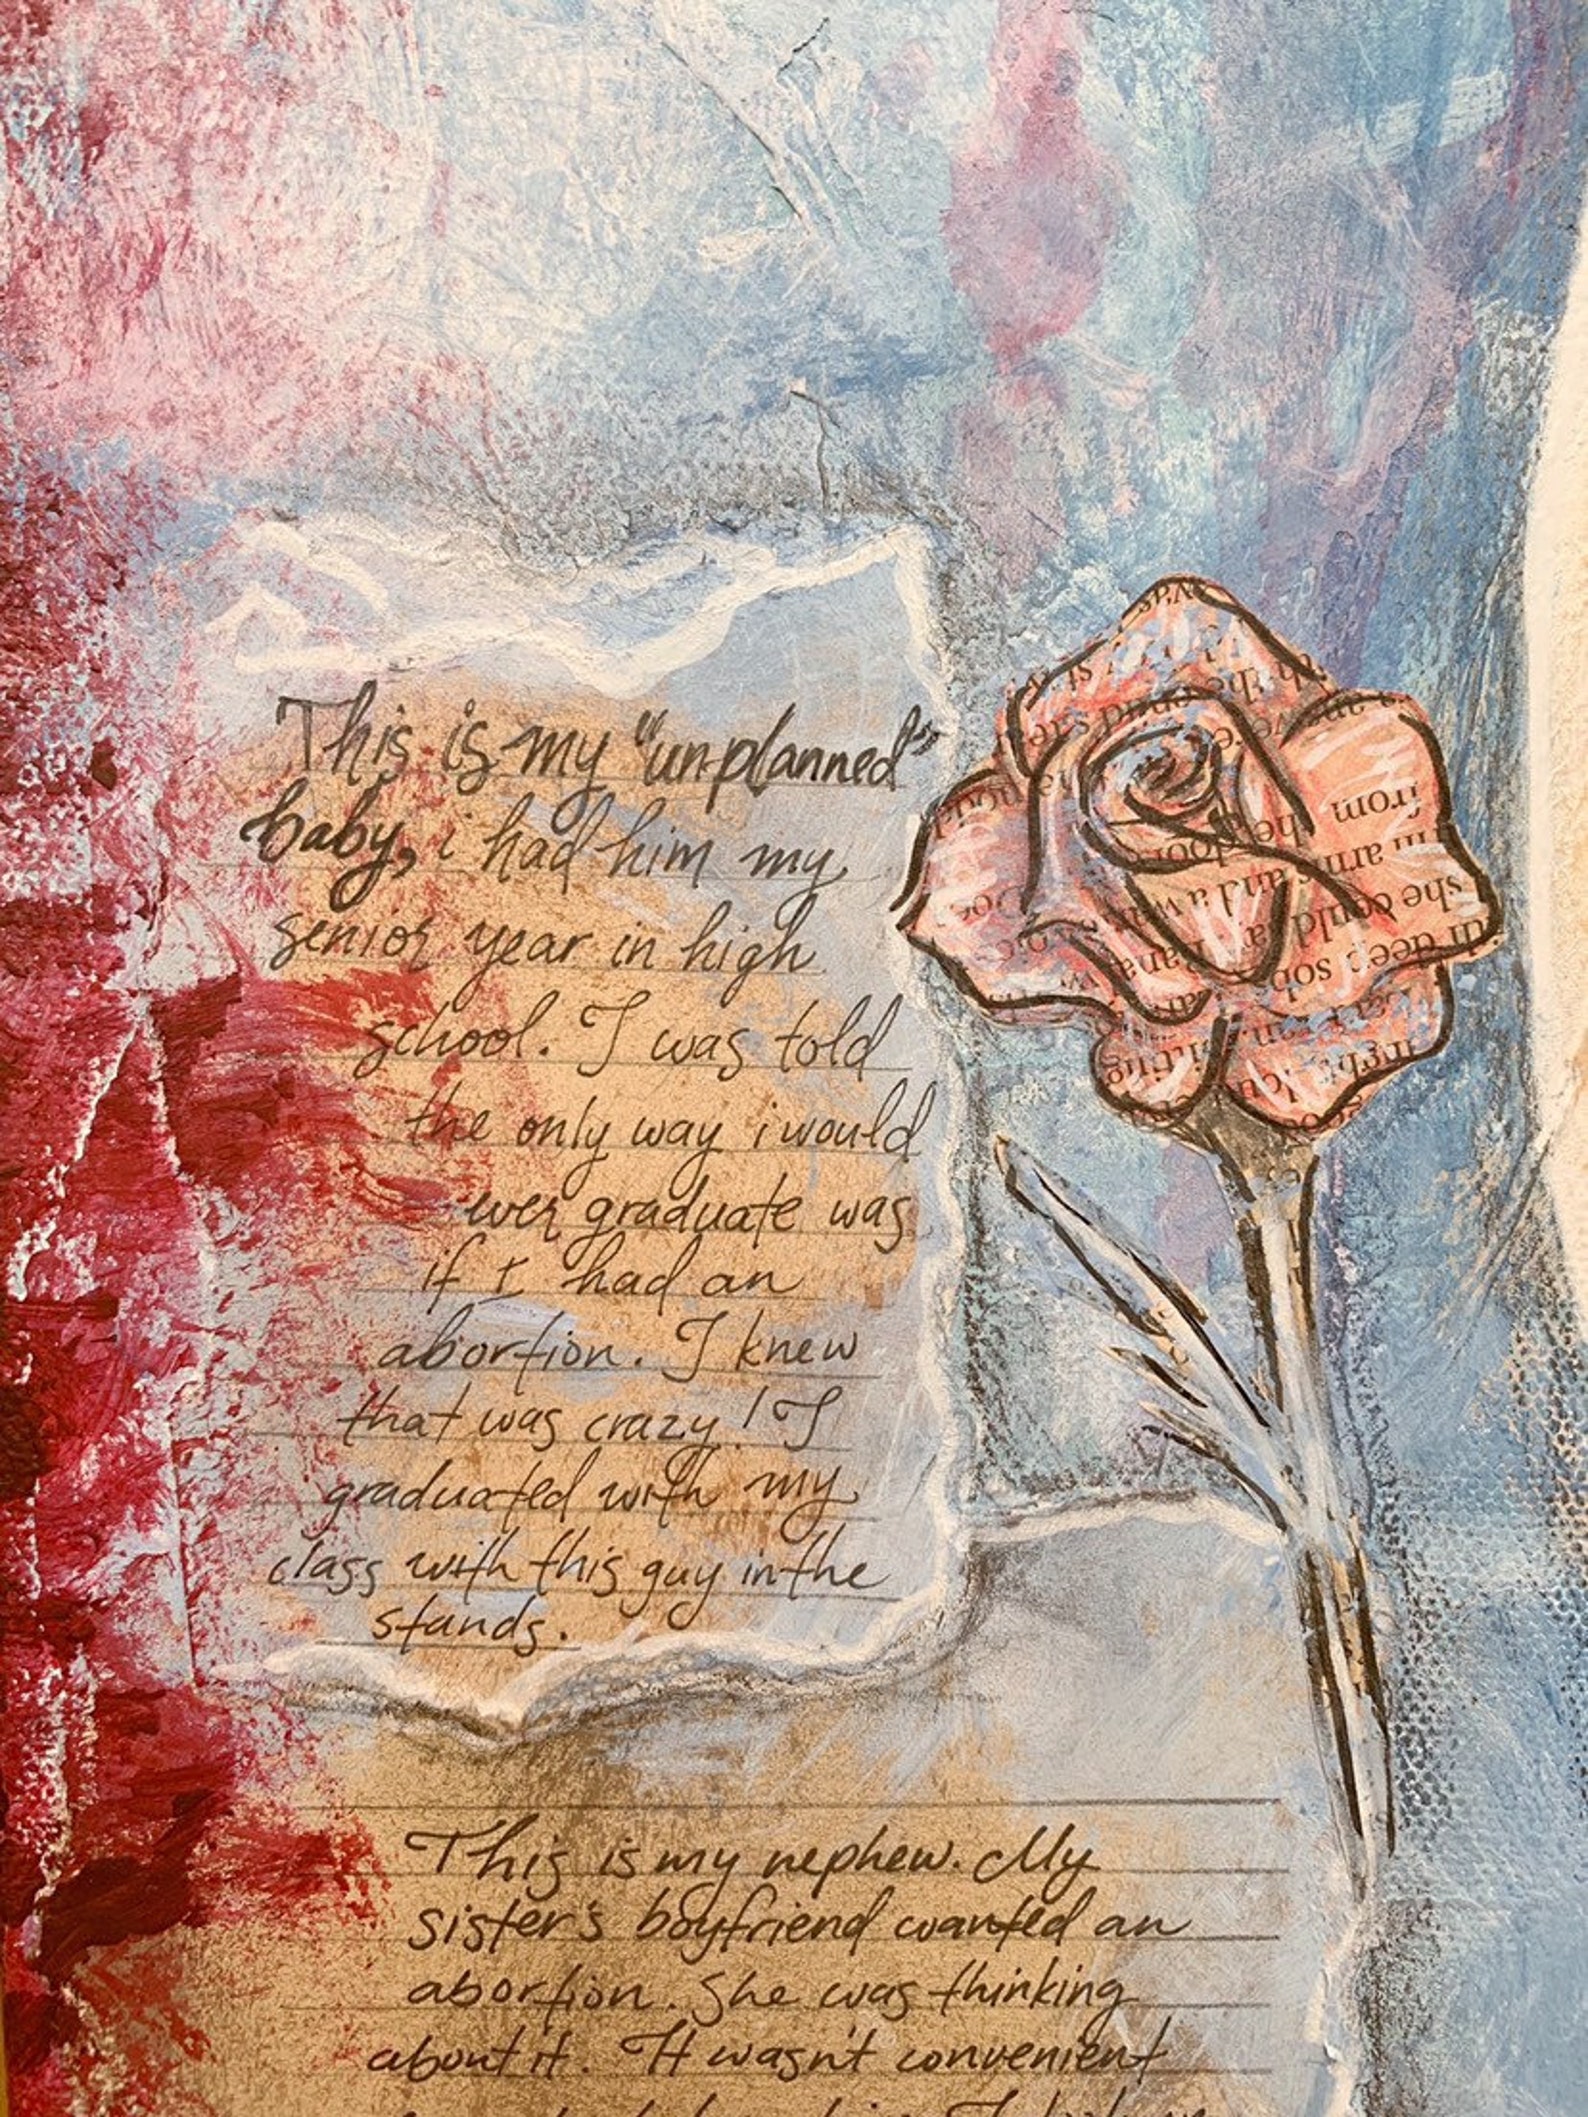 This is my "unplanned"
baby, i had him my
senior year in high
school. I was told
the only way i would
ever graduate was
if I had an
abortion. I knew
that was crazy! I
graduated with my
class with this guy in the
stands.
This is my nephew. My
sister's boyfriend wanted an
abortion. She was thinking
about it. It wasn't convenient
from
in arm
she could
and a
th deep sob